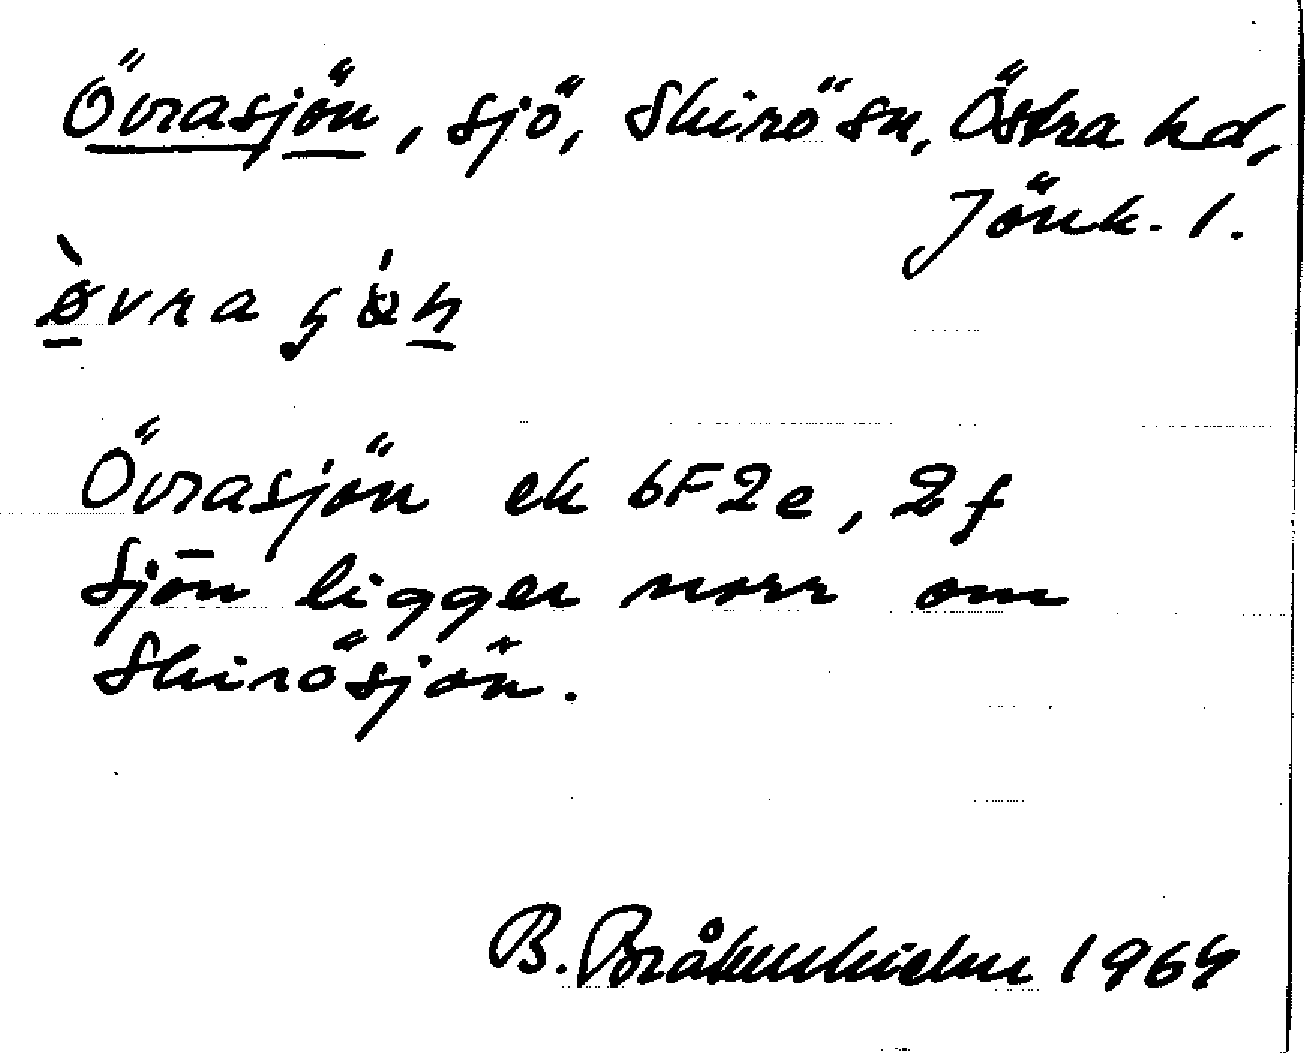 Övrasjön, sjö, Skirö sn, Östra hd,
Jönk. l.
Övrasjön ek 6F2e, 2f
Sjön ligger norr om
Skirösjön.
B. 1964